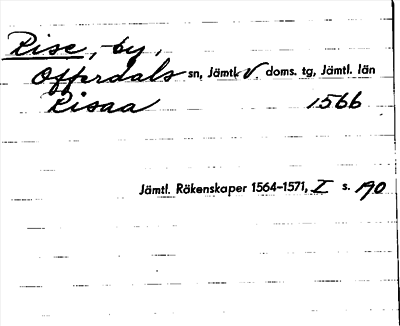 Rise, -by,
Offerdals sn, Jämtl. V. doms. tg, Jämtl. län
Risaa 1566
Jämtl. Räkenskaper 1564–1571, I s. 190